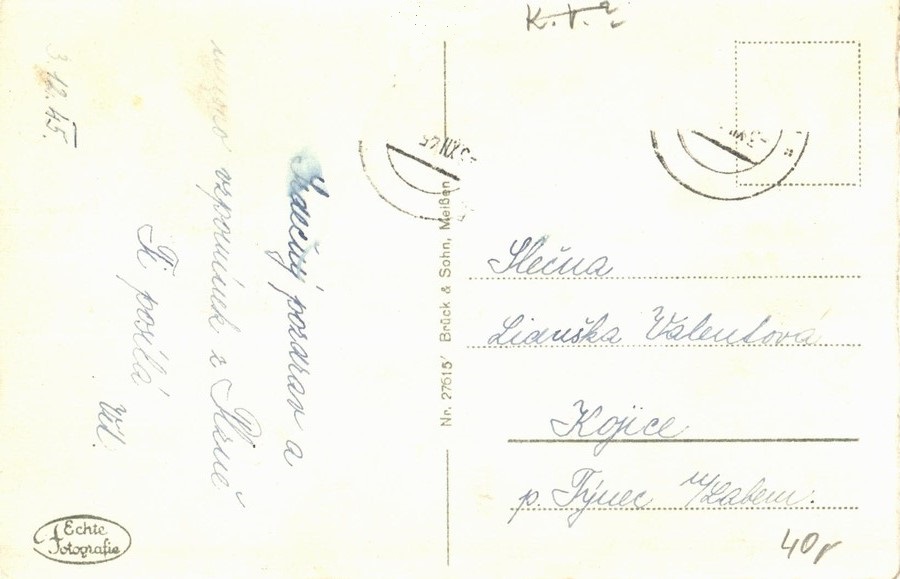 3.12.45.
Srdečný pozdrav a
mnoho vzpomínek z
Ti posílá
Nr. 27615 Brück & Sohn, Meißen
Slečna
Liduška Valentová
Kojice
p. Týnec n/Labem.
Echte
Fotografie
40